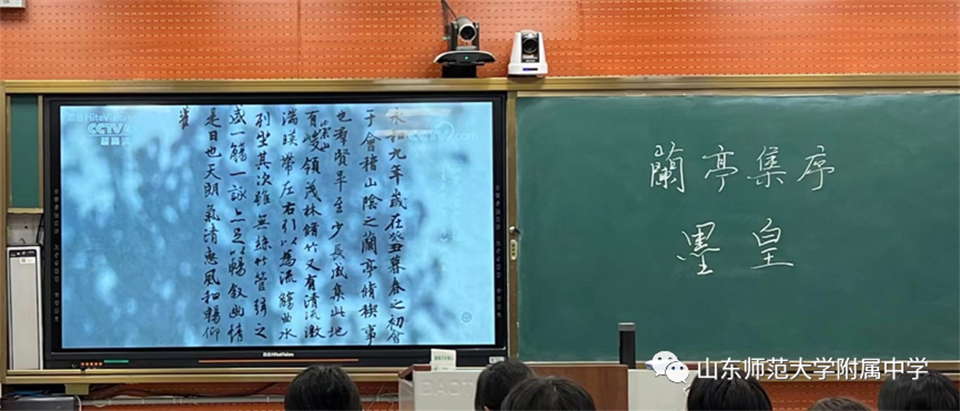 鸿合HiteVision
CCTV
永和九年歲在癸丑暮春之初會
于會稽山陰之蘭亭脩禊事
也羣賢畢至少長咸集此地
有崇山峻領茂林脩竹又有清流激
湍暎帶左右引以為流觴曲水
列坐其次雖無絲竹管弦之
盛一觴一詠亦足以暢敘幽情
是日也天朗氣清惠風和暢仰
鸿合HiteVision
蘭亭集序
墨皇
山东师范大学附属中学